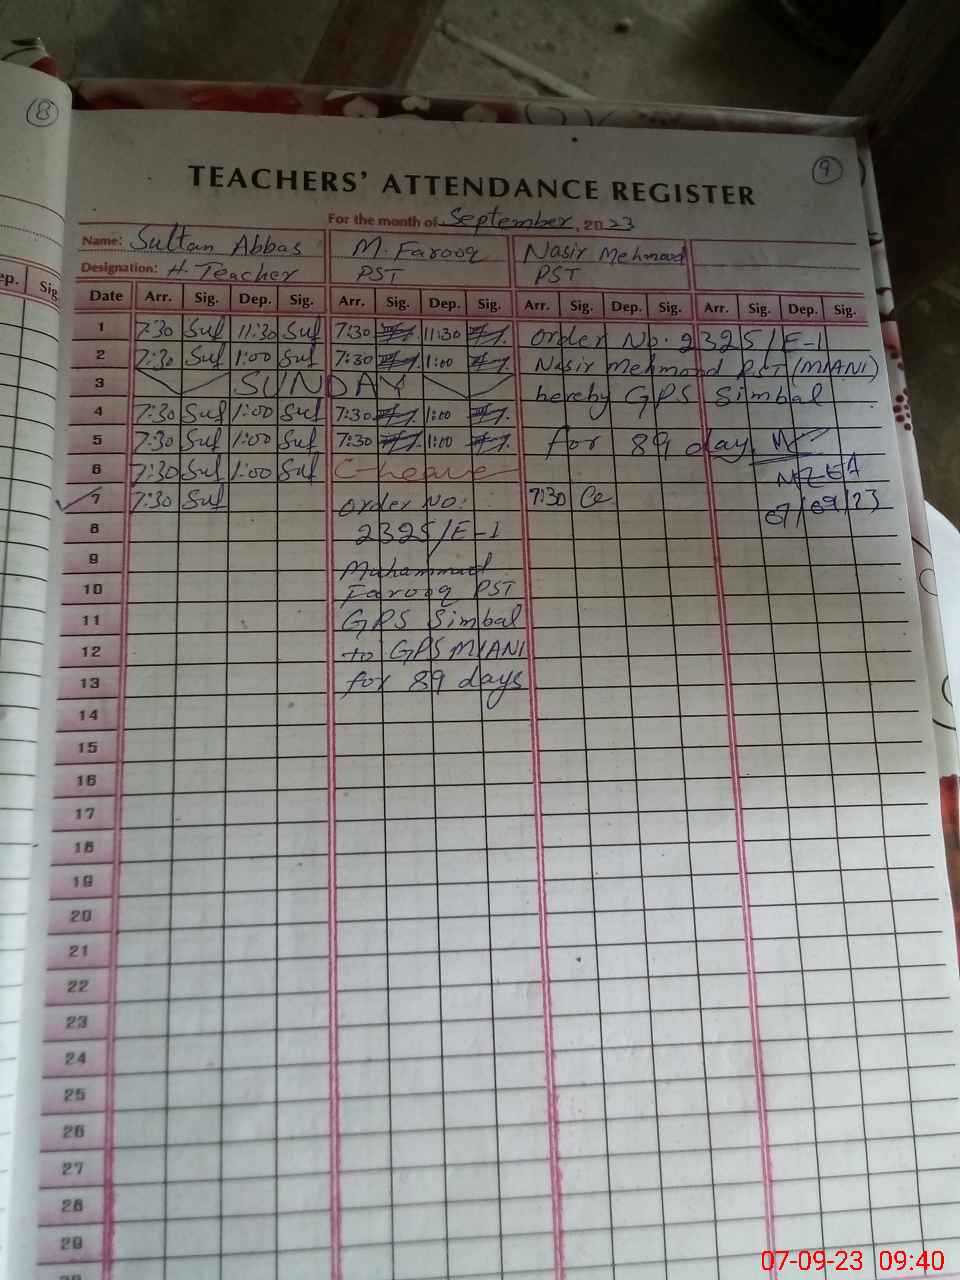 8
9
TEACHERS' ATTENDANCE REGISTER
For the month of September, 2023
Name: Sultan Abbas M. Farooq Nasir Mehmood
Designation: H. Teacher PST PST
ep. Sig
Date Arr. Sig. Dep. Sig. Arr. Sig. Dep. Sig. Arr. Sig. Dep. Sig. Arr. Sig. Dep. Sig.
1 7:30 Suf 11:30 Suf 7:30 11:30 order No. 2325/E-1
2 7:30 Suf 1:00 Suf 7:30 1:00 Nasir Mehmood PST (MIANI)
3 SUNDAY hereby GPS Simbal
4 7:30 Suf 1:00 Suf 7:30 1:00
5 7:30 Suf 1:00 Suf 7:30 1:00 for 89 day
6 7:30 Suf 1:00 Suf C-leave
7 7:30 Suf order NO: 7:30 07/09/23
8 2325/E-1
9 Muhammad
10 Farooq PST
11 GPS Simbal
12 to GPS MIANI
13 for 89 days
14
15
16
17
18
19
20
21
22
23
24
25
26
27
28
29
07-09-23 09:40